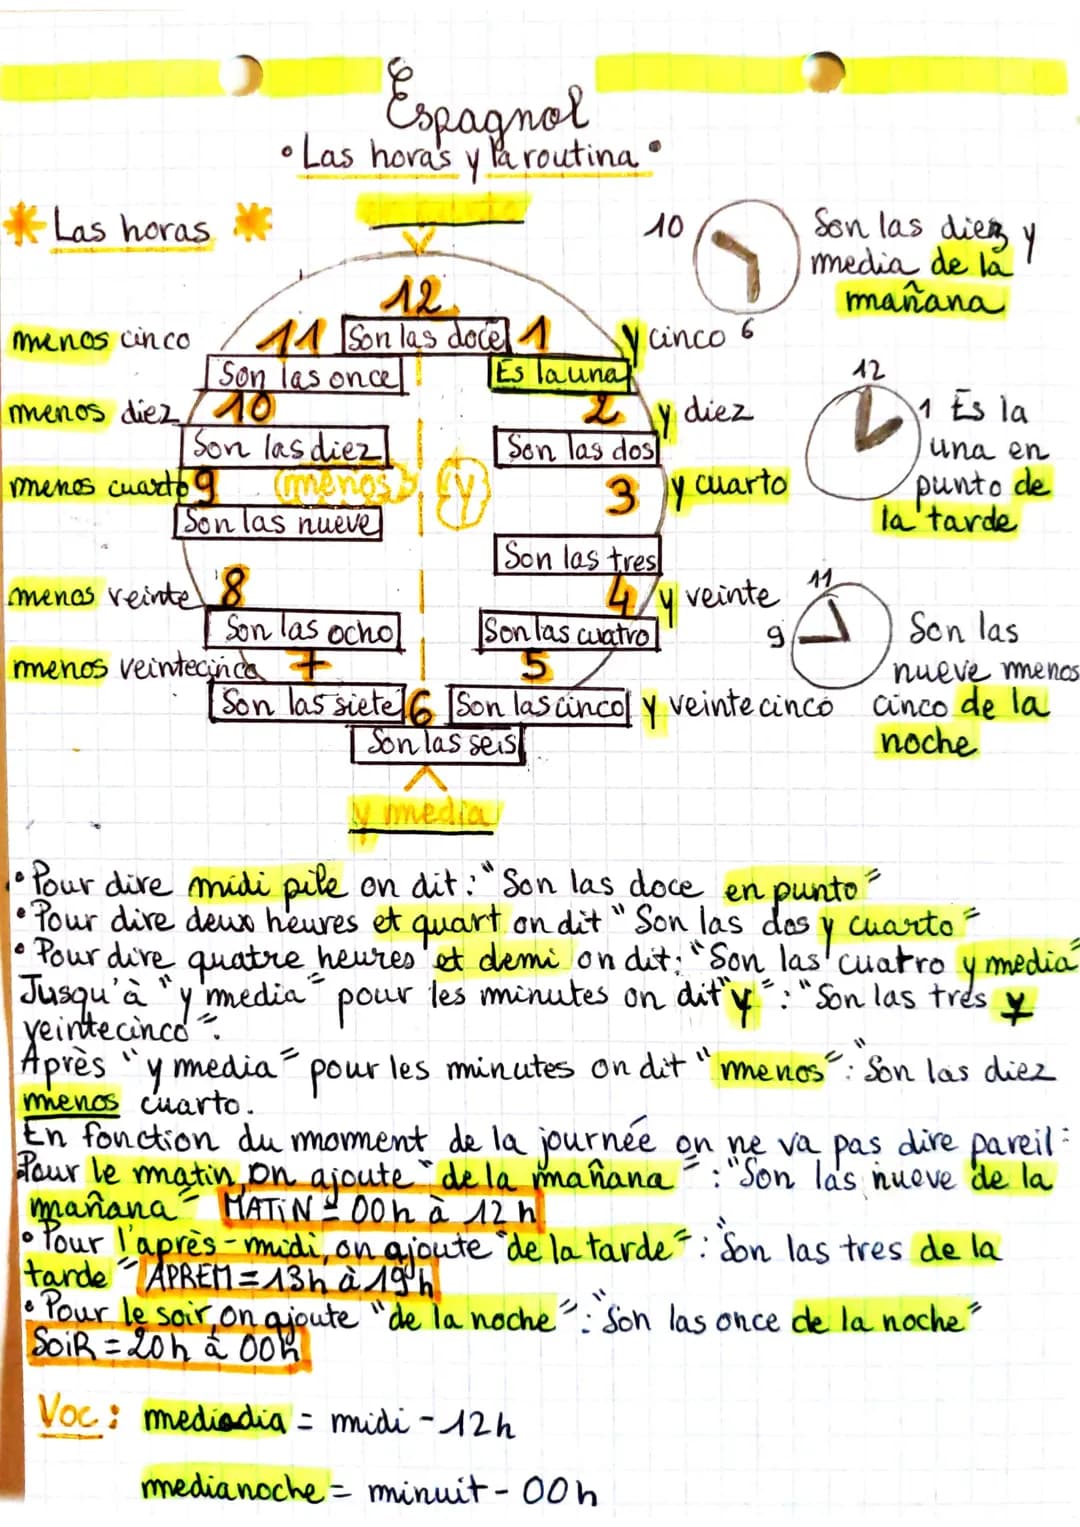 Espagnol
• Las horas y la routina •
Las horas
12
Son las doce
11
Son las once
1
Es la una
10
Son las diez
2
Son las dos
9
Son las nueve
3
Son las tres
8
Son las ocho
4
Son las cuatro
7
Son las siete
5
Son las cinco
6
Son las seis
menos
y
menos cinco
menos diez
menos cuarto
menos veinte
menos veintecinco
y cinco
y diez
y cuarto
y veinte
y veintecinco
y media
10
6
Son las diez y
media de la
mañana
12
1
Es la
una en
punto de
la tarde
11
9
Son las
nueve menos
cinco de la
noche
• Pour dire midi pile on dit : "Son las doce en punto"
• Pour dire deux heures et quart on dit "Son las dos y cuarto"
• Pour dire quatre heures et demi on dit : "Son las cuatro y media"
Jusqu'à "y media" pour les minutes on dit "y" : "Son las tres y
veintecinco".
Après "y media" pour les minutes on dit "menos" : "Son las diez
menos cuarto.
En fonction du moment de la journée on ne va pas dire pareil :
Pour le matin, on ajoute "de la mañana" : "Son las nueve de la
mañana" MATIN = 00h à 12h
• Pour l'après-midi, on ajoute "de la tarde" : "Son las tres de la
tarde" APREM = 13h à 19h
• Pour le soir, on ajoute "de la noche" : "Son las once de la noche"
SOIR = 20h à 00h
Voc : mediodia = midi - 12h
medianoche = minuit - 00h